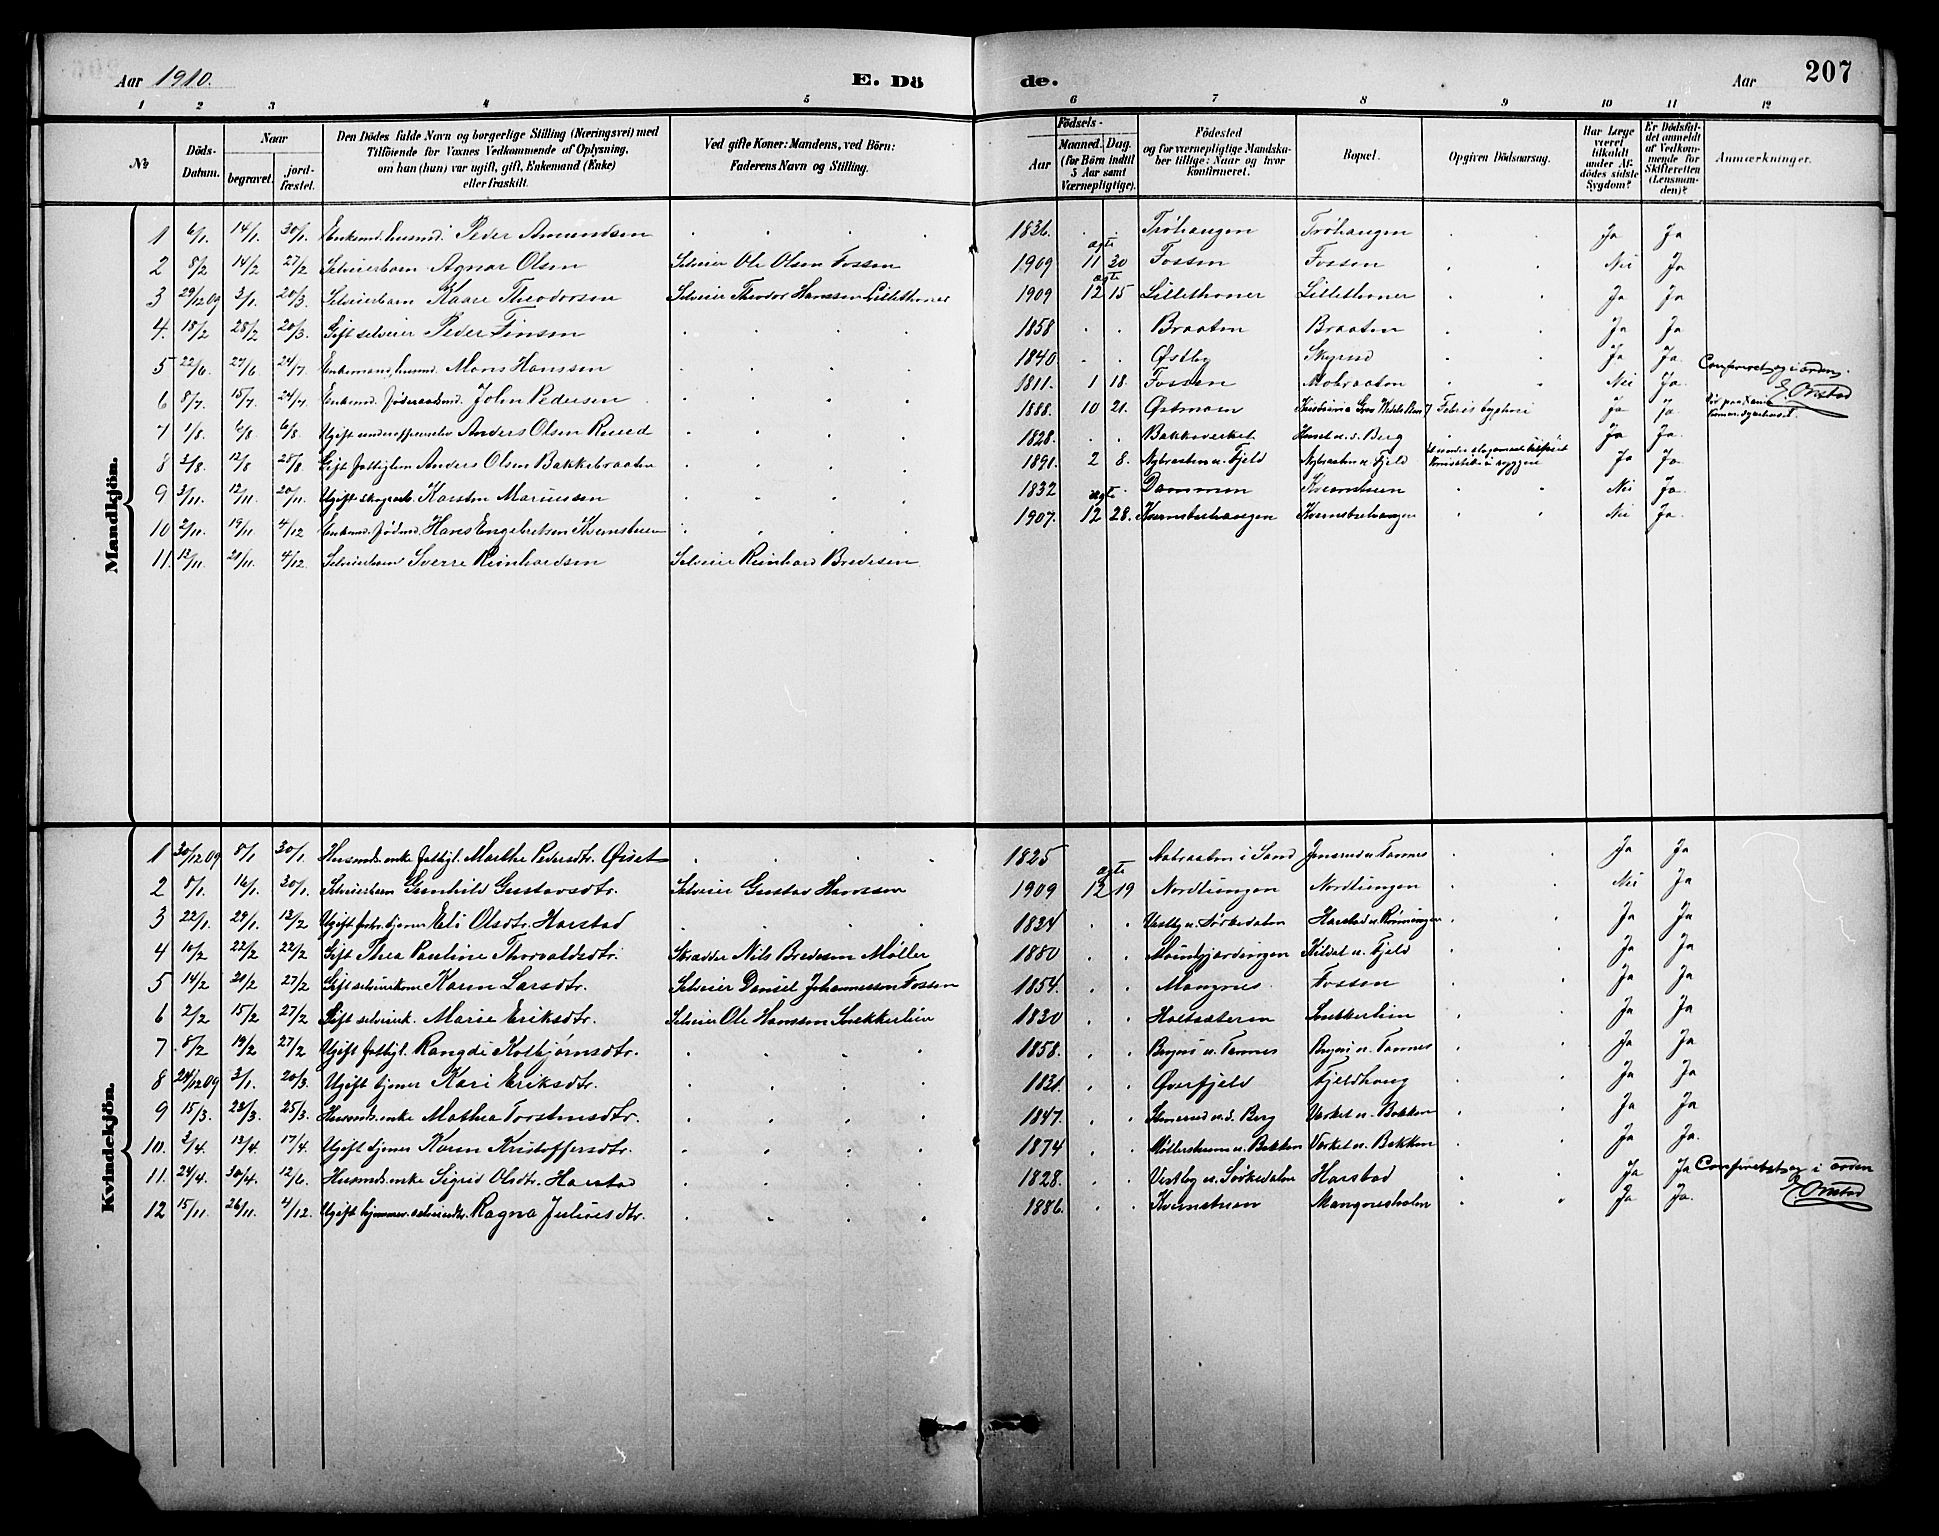 Aar 1910. E. Dö de. Aar 207
1 2 3 4 5 6 7 8 9 10 11 12
№
Döds-Datum.
Naar begravet. jordfæstet.
Den Dödes fulde Navn og borgerlige Stilling (Næringsvei) med
Tilföiende for Voxnes Vedkommende af Oplysning,
om han (hun) var ugift, gift, Enkemand (Enke)
eller fraskilt.
Ved gifte Koner: Mandens, ved Börn:
Faderens Navn og Stilling.
Födsels-
Aar
Maaned. Dag.
(for Börn indtil
5 Aar samt
Værnepligtige).
Födested
og for værnepligtige Mandska-
ber tillige: Naar og hvor
konfirmeret.
Bopæl.
Opgiven Dödsaarsag.
Har Læge
været
tilkaldt
under Af-
dödes sidste
Sygdom?
Er Dödsfal-
det anmeldt
af Vedkom-
mende for
Skifteretten
(Lensman-
den)?
Anmærkninger.
Mandkjön.
1 6/1. 14/1. 30/1. Enkemd. husmd. Peder Amundsen 1836. Trøhaugen Trøhaugen Ja Ja
2 8/2 14/2 27/2 Selveierbarn Agnar Olsen Selveier Ole Olsen Fossen 1909 ægte 11 30 Fossen Fossen Nei Ja
3 29/12 09 3/1. 20/3. Selveierbarn Kaare Theodorsen Selveier Theodor Hanssen Lillethoner 1909 ægte 12 15 Lillethoner Lillethoner Ja Ja
4. 18/2 28/2 20/3. Gift selveier Peder Finsen 1858 Braaten Braaten Ja Ja
5 22/6 27/6 24/7. Enkemand, husmd. Mons Hanssen 1840 Østby Skyrud Ja Ja.
6 8/7. 15/7 24/7. Enkemd. Føderaadsmd. John Pedersen 1811. 1 18. Fossen Nei Ja. Confereret og i orden.
E Onstad
7 1/8. 6/8 6/8. Ugift underofficerselev Anders Olsen Rund 1888. 10 21. Østmoen Ja Ja
8 3/8. 12/8 28/8. Gift fattiglem Anders Olsen Bakkebraaten 1828. Bakkeverket Ja Ja.
9 3/11. 12/11. 20/11. Ugift skogsarb. Karsten Mariussen 1891. 2 8. Nybraaten u. Fjeld Nybraaten u. Fjeld Ja Ja.
10 2/11. 19/11. 4/12 Enkemd. fødmd. Hans Engebretsen Kvernstuen 1832 Dammen Kvernstuen Nei Ja.
11. 12/11. 21/11. 4/12. Selveierbarn Sverre Reinhardsen Selveier Reinhard Bredesen 1907. ægte 12 28. Kvernstuehaugen Kvernstuehaugen Nei Ja.
Kvindekjön.
1 30/12 09 8/1. 30/1. Husmds. enke fattigl. Marthe Pedersdtr. Øiset 1825 Aabraaten i Sand Jensrud u. Tannes Ja Ja
2 8/1. 16/1. 30/1. Selveierbarn Gunhild Gustavsdtr. Selveier Gustav Hanssen 1909 ægte 12 19 Nordlungen Nordlungen Nei Ja
3 22/1. 29/1. 13/2 Ugift forh. tjener Eli Olsdtr. Harstad 1824 Vestby u. Sørkedalen Harstad u. Rønningen Ja Ja
4 10/2 22/2 22/2 Gift Thea Pauline Thorvaldsdtr. Skrædder Nils Bredesen Møller 1880 Kildal u. Fjeld Ja Ja
5 14/2 20/2 27/2 Gift selveierkone Karen Larsdtr. Selveier Daniel Johannessen Fossen 1854. Mangnes. Fossen Ja Ja
6 2/2 15/2 27/2 Gift selveierk. Marie Eriksdtr. Selveier Ole Hanssen Snekkerlien 1830 Holtsæteren Snekkerlien Ja Ja
7. 8/2 19/2 27/2 Ugift fattigl. Rangdi Kolbjørnsdtr. 1858. Bryni u. Tannes Bryni u. Tannes Ja Ja
8 24/12 09 3/1. 20/3. Ugift tjener Kari Eriksdtr. 1831. Øverfjeld Fjeldhaug Ja Ja
9 15/3. 23/3. 25/3. Husmds. enke Mathea Torstensdtr. 1847. Stenerud u. S. Berg Værket u. Bakken Ja Ja
10. 3/4. 13/4. 17/4. Ugift tjener Karen Kristoffersdtr. 1874 Møllerstuen u. Bakken Værket u. Bakken Ja Ja.
11. 24/4. 30/4. 12/6. Husmds. enke Sigrid Olsdtr. Harstad 1828. Vestby u. Sørkedalen Harstad Ja Ja Confereret og i orden
E Onstad
12 15/11. 26/11. 4/12. Ugift hjemmev. selveierdtr. Ragna Juliusdtr. 1886. Kvernstuen Mangnesholen Ja Ja.